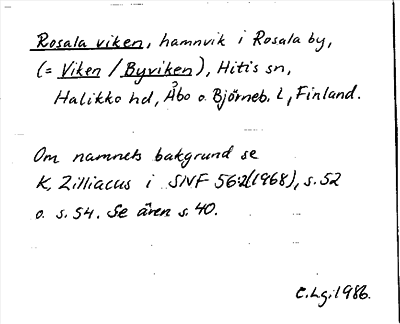 Rosala viken, hamnvik i Rosala by,
(= Viken / Byviken), Hitis sn,
Halikko hd, Åbo o. Björneb. L, Finland.
Om namnets bakgrund se
K. Zilliacus i SNF 56:2(1968), s. 52
o. s. 54. Se även s. 40.
C.Lg. 1986.